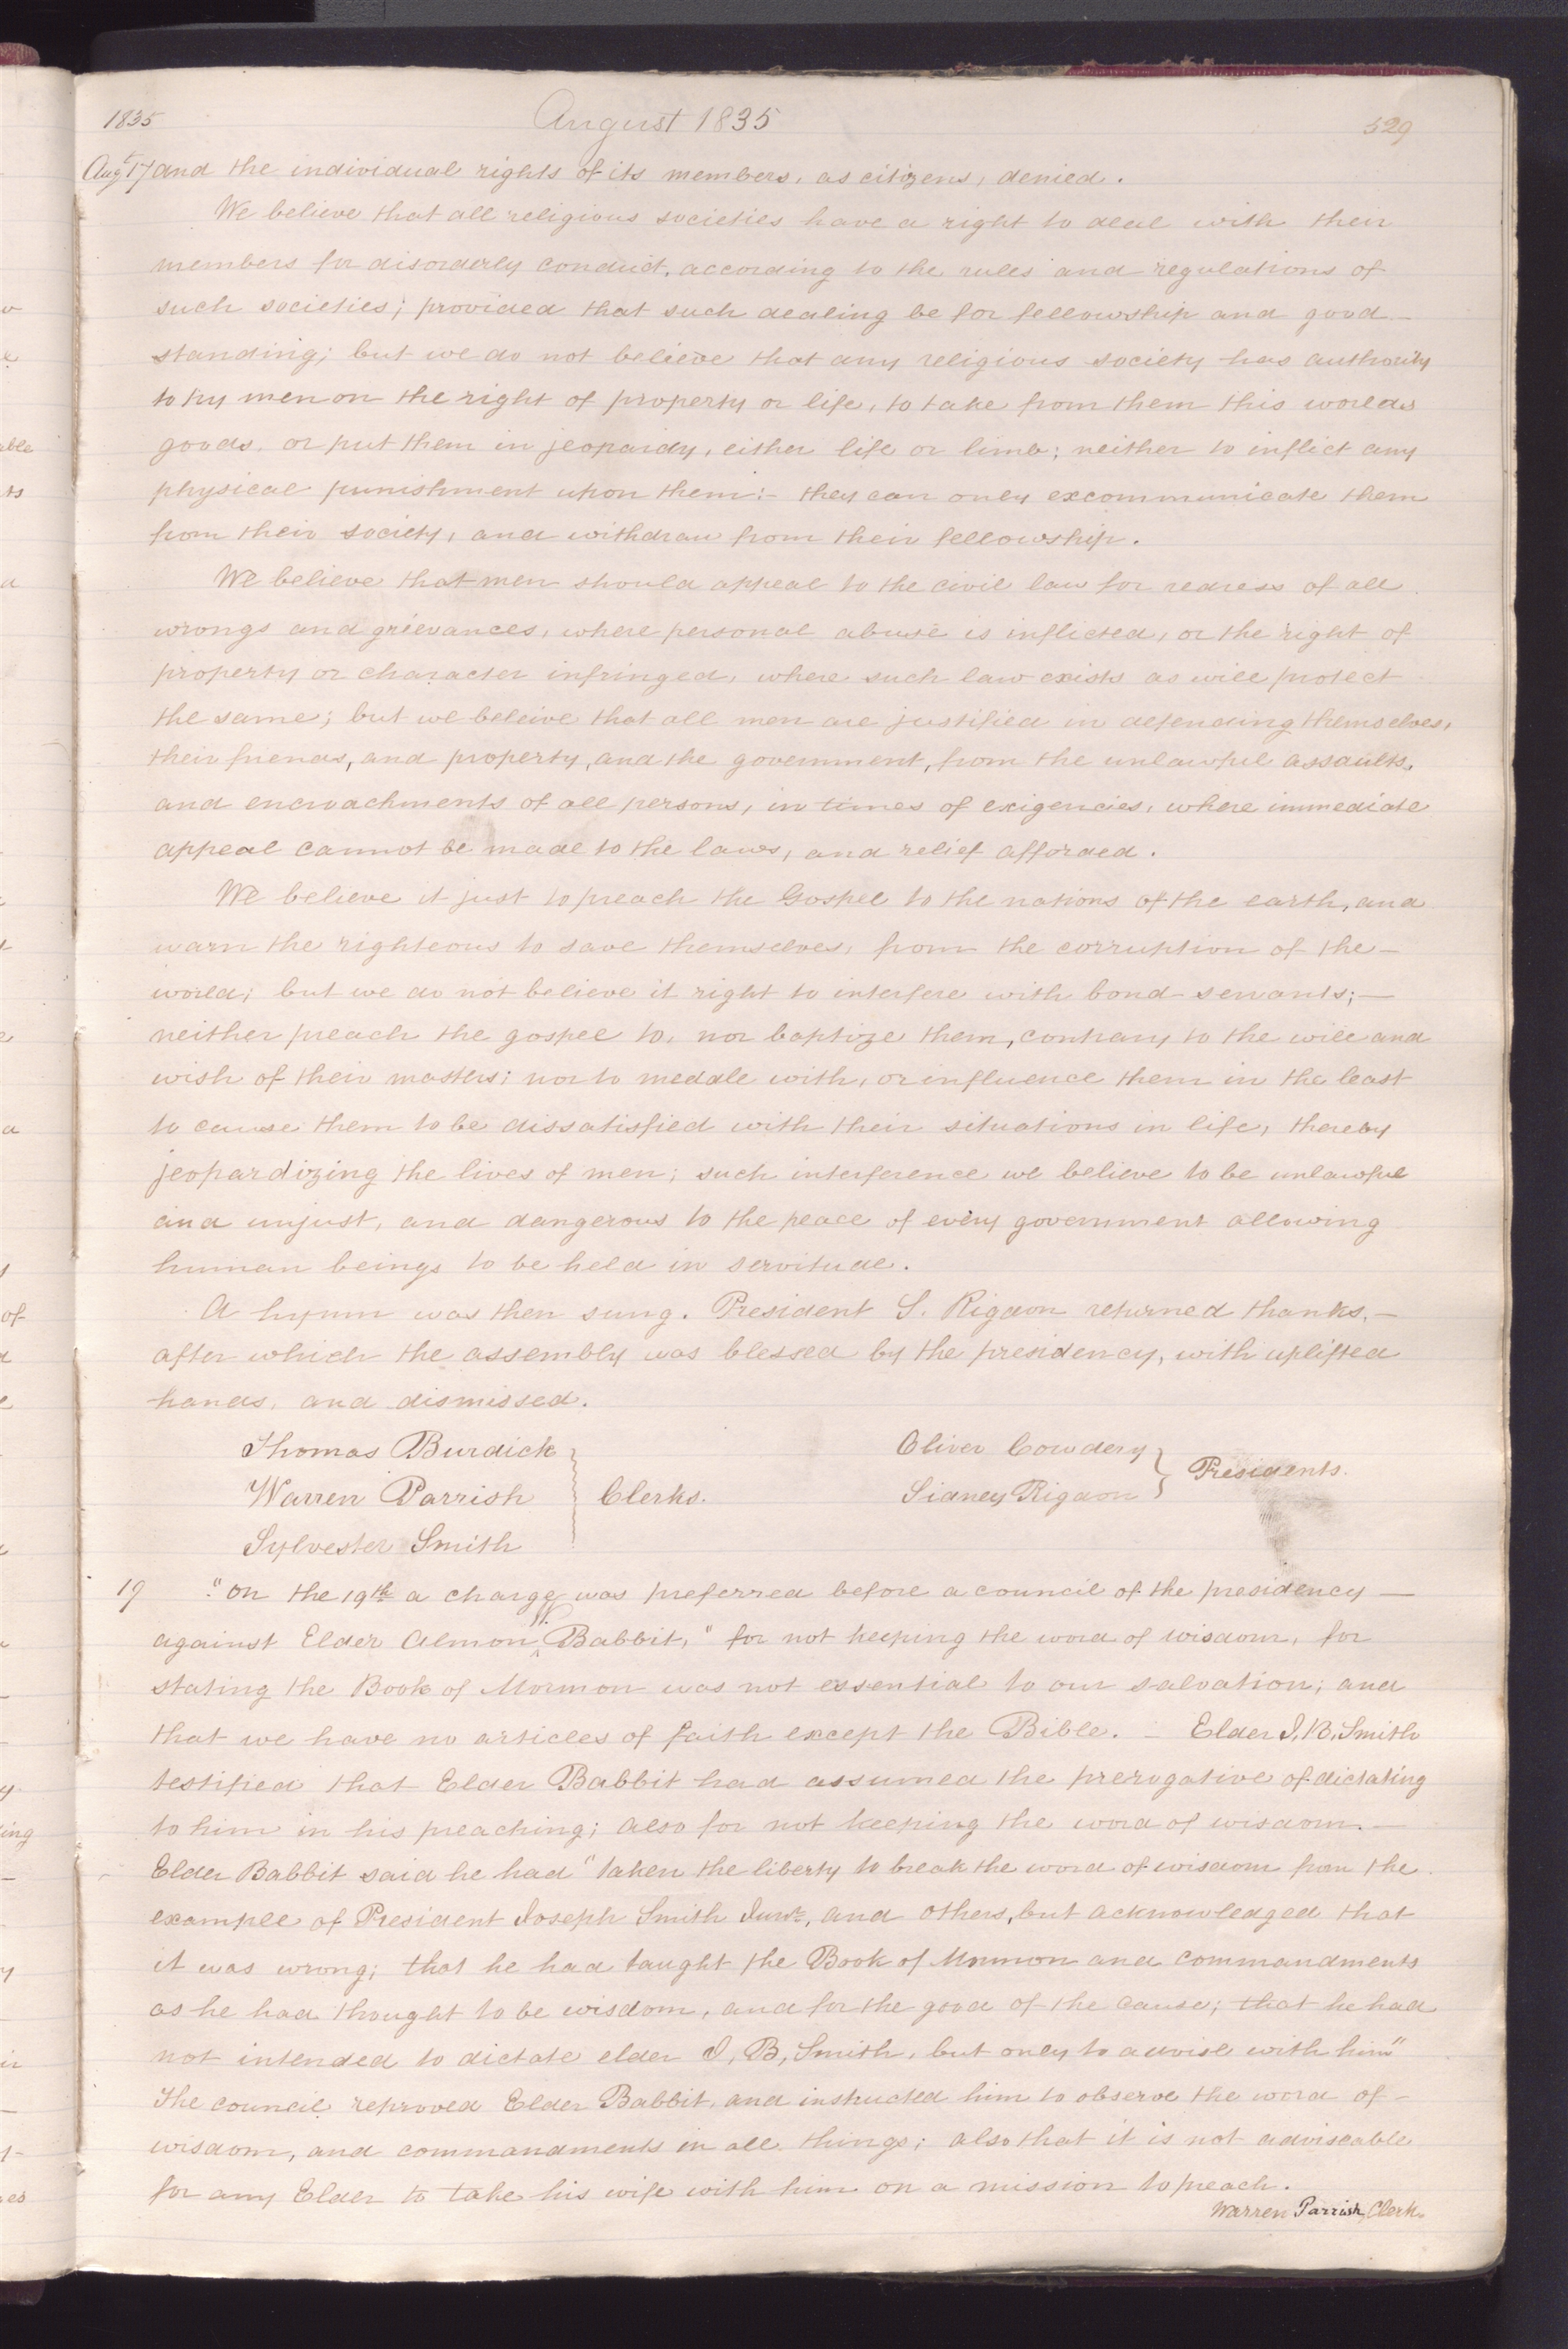 1835 August 1835 529
Augt 17 and the individual rights of its members, as citizens, denied.
We believe that all religious societies have a right to deal with their
members for disorderly conduct, according to the rules and regulations of
such societies; provided that such dealing be for fellowship and good
standing; but we do not believe that any religious society has authority
to try men on the right of property or life, to take from them this worlds
goods, or put them in jeopardy, either life or limb; neither to inflict any
physical punishment upon them:- they can only excommunicate them
from their society, and withdraw from their fellowship.
We believe that men should appeal to the civil law for redress of all
wrongs and grievances, where personal abuse is inflicted, or the right of
property or character infringed, where such law exists as will protect
the same; but we beleive that all men are justified in defending themselves,
their friends, and property, and the government, from the unlawful assaults,
and encroachments of all persons, in times of exigencies, where immediate
appeal cannot be made to the laws, and relief afforded.
We believe it just to preach the Gospel to the nations of the earth, and
warn the righteous to save themselves, from the corruption of the-
world; but we do not believe it right to interfere with bond servants;-
neither preach the gospel to, nor baptize them, contrary to the will and
wish of their masters; nor to meddle with, or influence them in the least
to cause them to be dissatisfied with their situations in life, thereby
jeopardizing the lives of men; such interference we believe to be unlawful
and unjust, and dangerous to the peace of every government allowing
human beings to be held in servitude.
A hymn was then sung. President S. Rigdon returned thanks,-
after which the assembly was blessed by the presidency, with uplifted
hands, and dismissed.
Thomas Burdick
Warren Parrish } Clerks.
Sylvester Smith
Oliver Cowdery
Sidney Rigdon } Presidents.
19 "On the 19th a charge was preferred before a council of the presidency-
against Elder Almon W. Babbit," for not keeping the word of wisdom, for
stating the Book of Mormon was not essential to our salvation; and
that we have no articles of faith except the Bible. - Elder J. B. Smith
testified that Elder Babbit had assumed the prerogative of dictating
to him in his preaching; also for not keeping the word of wisdom.-
Elder Babbit said he had "taken the liberty to break the word of wisdom from the
example of President Joseph Smith Junr., and others, but acknowledged that
it was wrong; that he had taught the Book of Mormon and commandments
as he had thought to be wisdom, and for the good of the cause; that he had
not intended to dictate elder J, B, Smith, but only to advise with him"
The council reproved Elder Babbit, and instructed him to observe the word of-
wisdom, and commandments in all things; also that it is not adviseable
for any Elder to take his wife with him on a mission to preach.
Warren Parrish, Clerk.